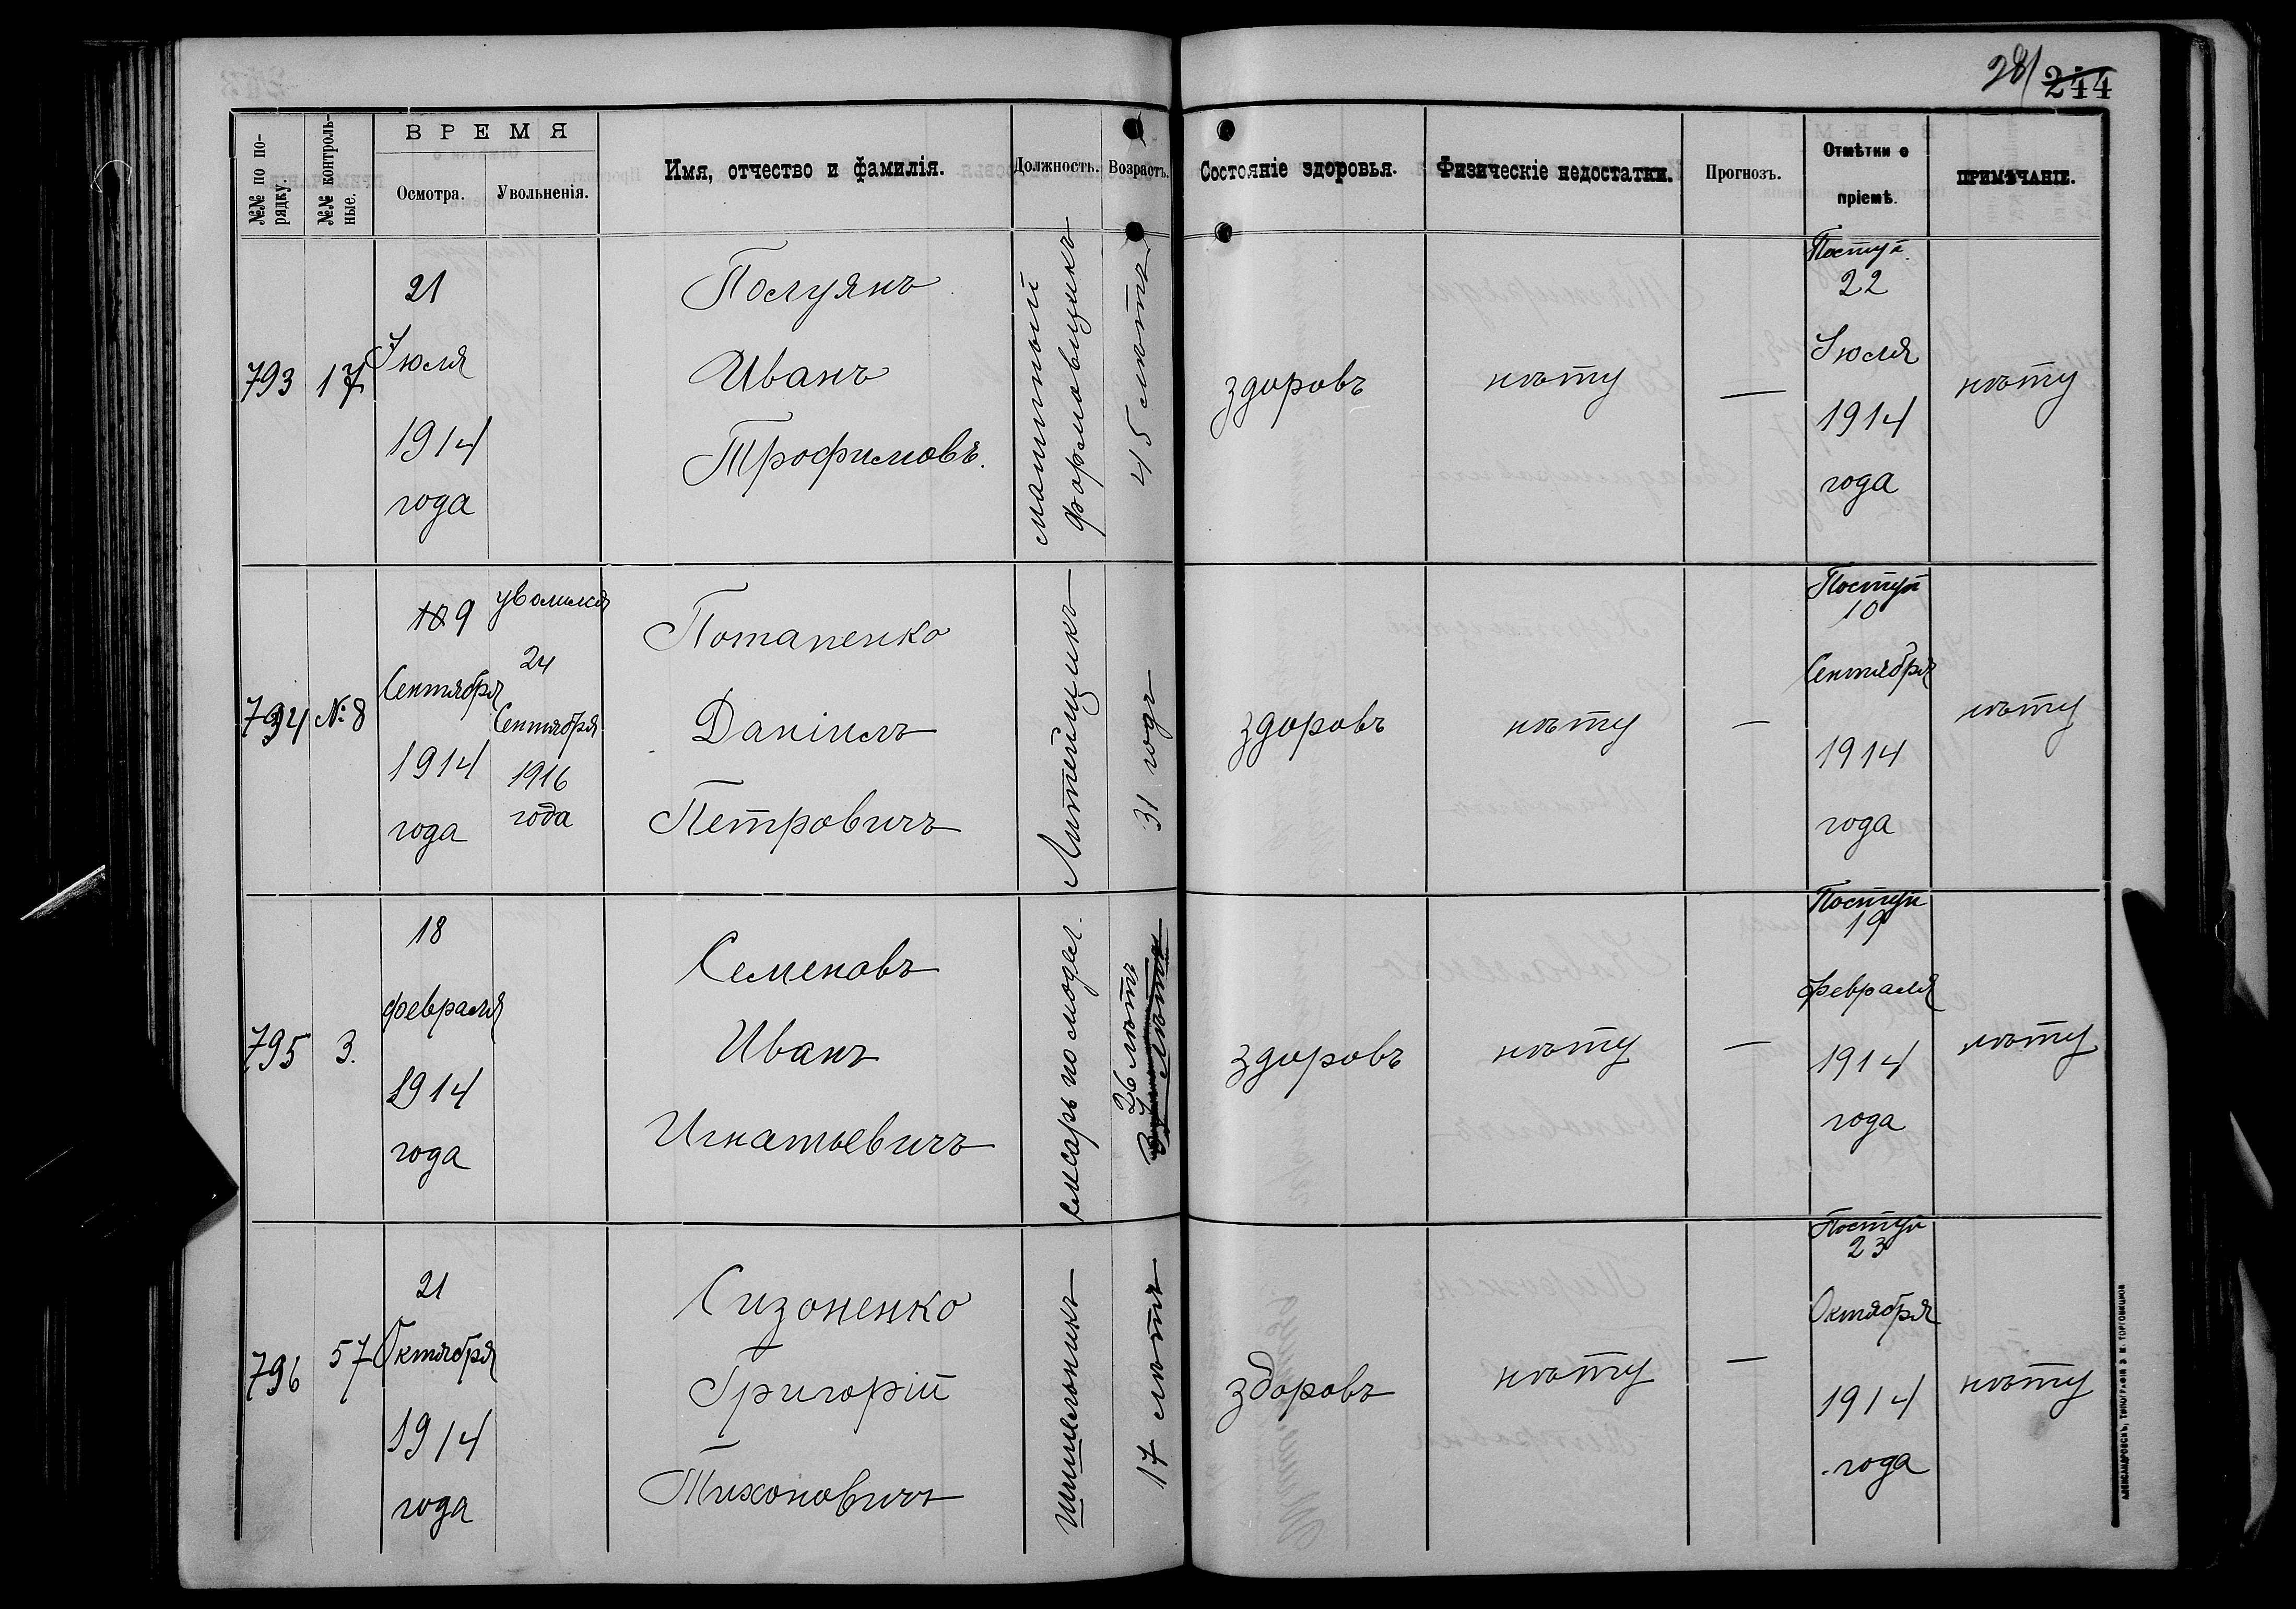 281 244
№№ по по-
рядку.
№№ контроль-
ные.
ВРЕМЯ
Осмотра.
Увольненія.
Имя, отчество и фамилія.
Должность.
Возрастъ.
Состояніе здоровья.
Физическіе недостатки.
Прогнозъ.
Отмѣтки о
пріемѣ.
ПРИМѢЧАНІЕ.
793
17
21
Іюля
1914
года
Полуянъ
Иванъ
Трофимовъ.
машинный
формовщикъ
45 лѣтъ
здоровъ
нѣту
—
Поступ.
22
Іюля
1914
года
нѣту
794
№ 8
10 9
Сентября
1914
года
уволился
24
Сентября
1916
года
Потапенко
Даніилъ
Петровичъ
Литейщикъ
31 годъ
здоровъ
нѣту
—
Поступ
10
Сентября
1914
года
нѣту
795
3.
18
февраля
1914
года
Семеновъ
Иванъ
Игнатьевичъ
слесарь по модел.
26 лѣтъ
здоровъ
нѣту
—
Поступ
19
февраля
1914
года
нѣту
796
57
21
Октября
1914
года
Сизоненко
Григорій
Тихоновичъ
шишельникъ
17 лѣтъ
здоровъ
нѣту
—
Поступ
23
Октября
1914
года
нѣту
АЛЕКСАНДРОВСКЪ, ТИПОГРАФІЯ Э. И. ТОРГОВИЦКОВ